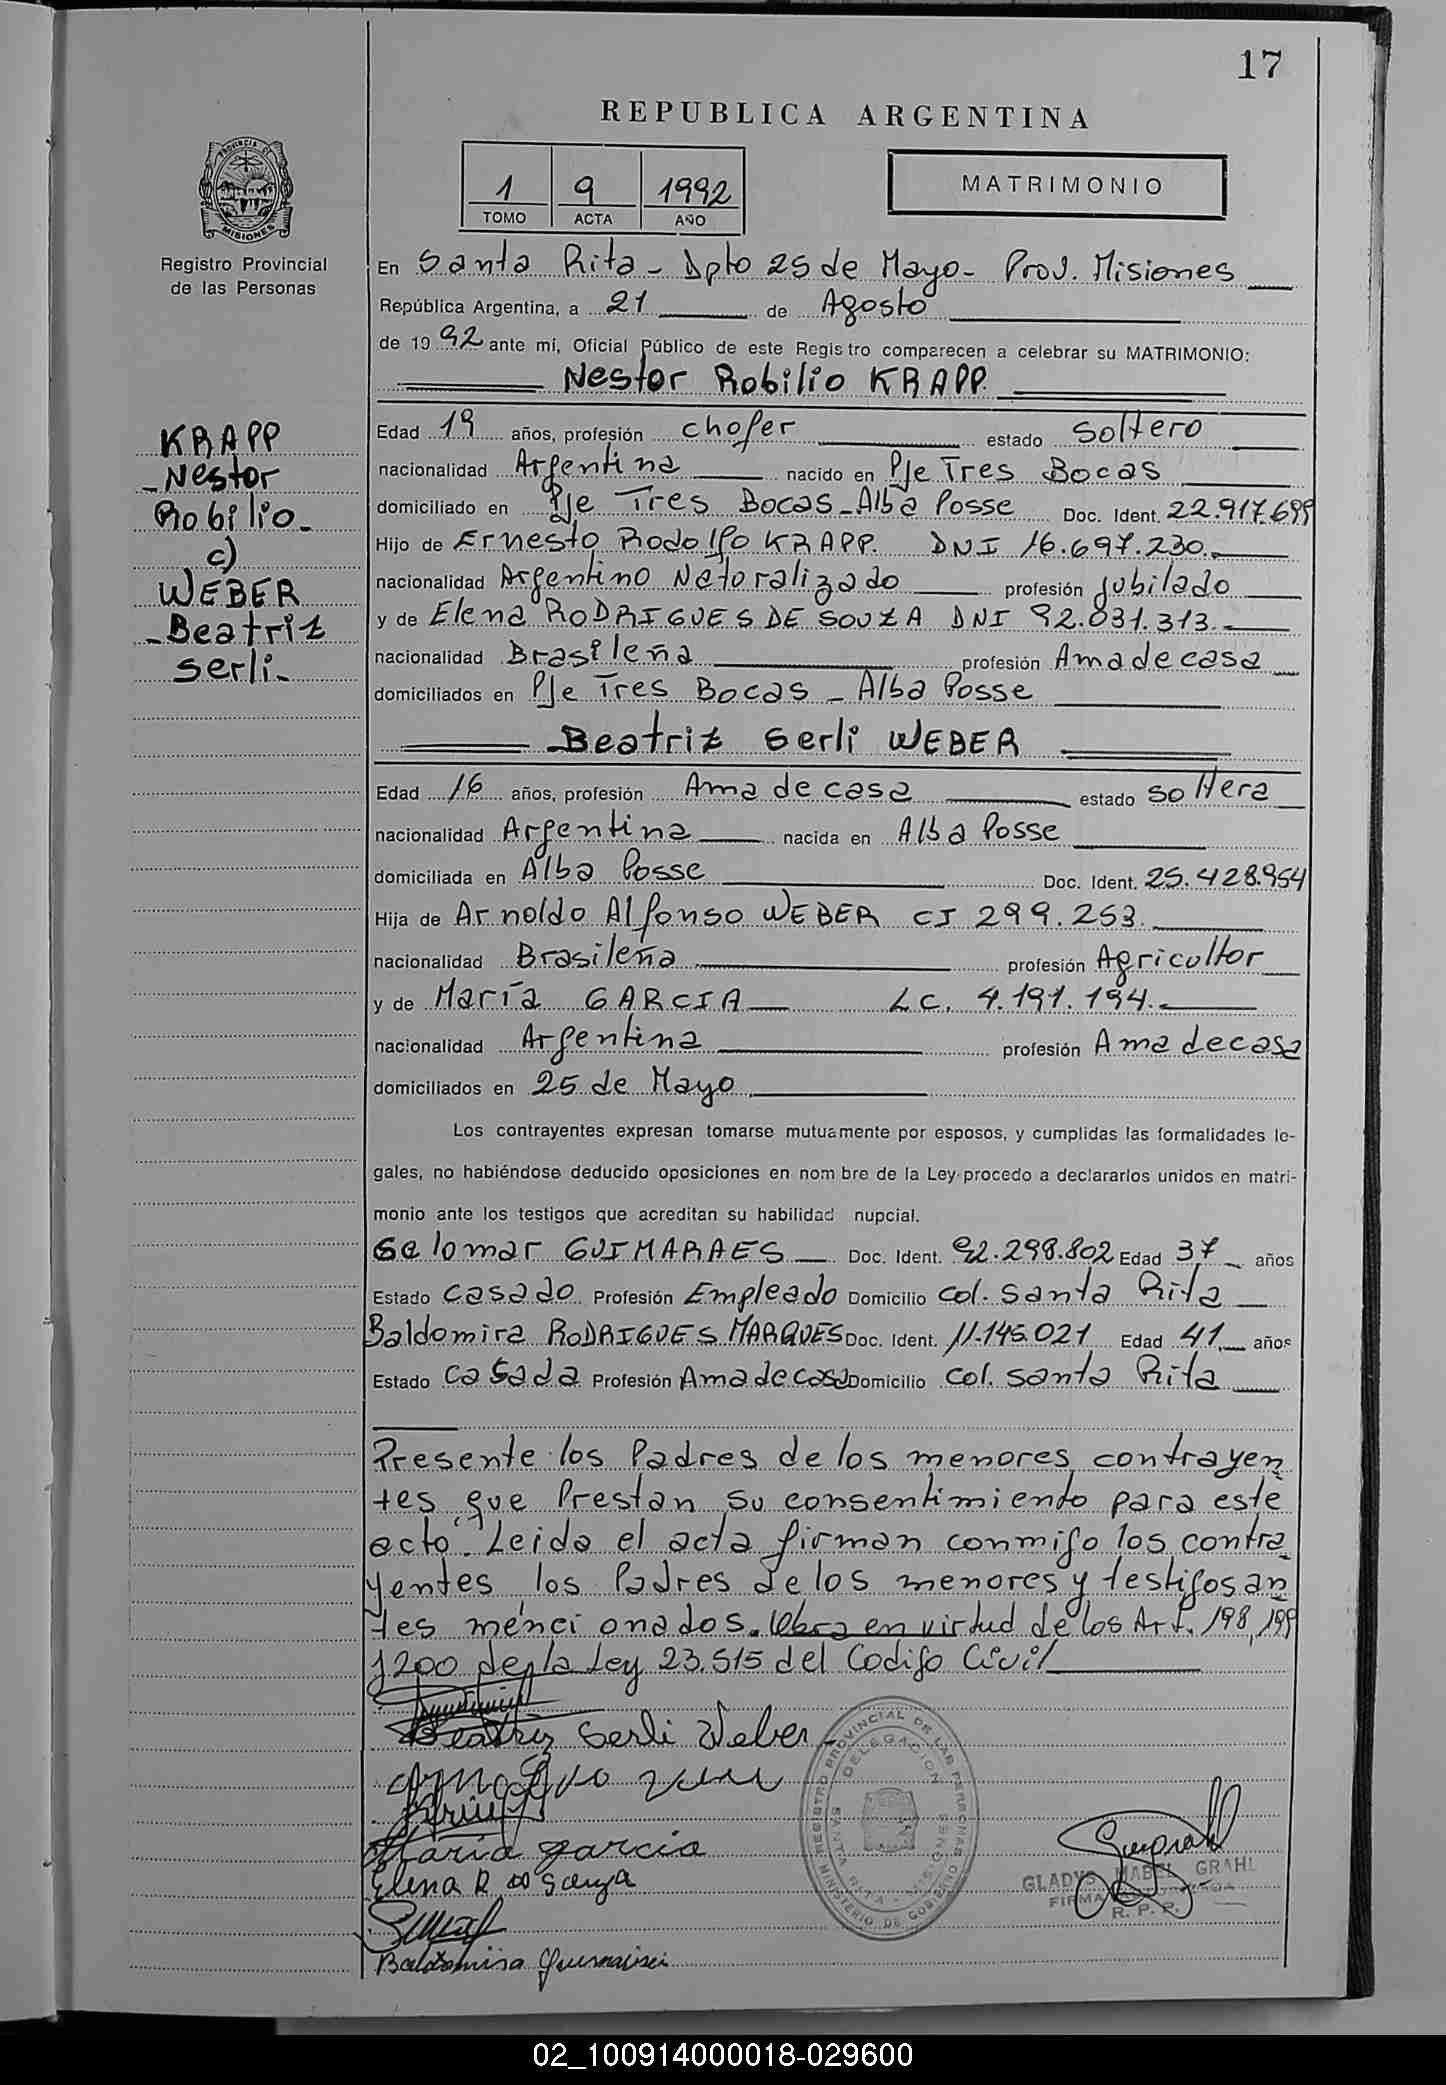 17
REPUBLICA ARGENTINA
1 9 1992
TOMO ACTA AÑO
MATRIMONIO
PROVINCIA DE MISIONES
Registro Provincial
de las Personas
En Santa Rita - Dpto 25 de Mayo - Prov. Misiones
República Argentina, a 21 de Agosto
de 1992 ante mi, Oficial Público de este Registro comparecen a celebrar su MATRIMONIO:
Nestor Robilio KRAPP.
KRAPP
-Nestor
Robilio-
c)
WEBER
-Beatriz
Serli-
Edad 19 años, profesión chofer estado Soltero
nacionalidad Argentina nacido en Pje Tres Bocas
domiciliado en Pje Tres Bocas - Alba Posse Doc. Ident. 22.917.699
Hijo de Ernesto Rodolfo KRAPP. DNI 16.697.230.
nacionalidad Argentino Natoralizado profesión Jubilado
y de Elena RODRIGUES DE SOUZA DNI 92.031.313.
nacionalidad Brasileña profesión Ama de casa
domiciliados en Pje Tres Bocas - Alba Posse
Beatriz Serli WEBER
Edad 16 años, profesión Ama de casa estado soltera
nacionalidad Argentina nacida en Alba Posse
domiciliada en Alba Posse Doc. Ident. 25.428.954
Hija de Arnoldo Alfonso WEBER CI 299.253.
nacionalidad Brasileña profesión Agricultor
y de María GARCIA LC. 4.191.194.
nacionalidad Argentina profesión Ama de casa
domiciliados en 25 de Mayo
Los contrayentes expresan tomarse mutuamente por esposos, y cumplidas las formalidades le-
gales, no habiéndose deducido oposiciones en nombre de la Ley procedo a declararlos unidos en matri-
monio ante los testigos que acreditan su habilidad nupcial.
Selomar GUIMARAES Doc. Ident. 92.298.802 Edad 37 años
Estado casado Profesión Empleado Domicilio col. Santa Rita
Baldomira RODRIGUES MARQUES Doc. Ident. 11.145.021 Edad 41 años
Estado casada Profesión Ama de casa Domicilio col. Santa Rita
Presente los Padres de los menores contrayen
tes que Prestan su consentimiento para este
acto. Leida el acta firman conmigo los contra
yentes los Padres de los menores y testigos an
tes mencionados. Obra en virtud de los Art. 198, 199
y 200 de la Ley 23.515 del Codigo Civil
Beatriz Serli Weber
Maria garcia
Elena R de Souza
Baldomira
REGISTRO PROVINCIAL DE LAS PERSONAS
DELEGACION
SANTA RITA - MISIONES
MINISTERIO DE GOBIERNO
GLADYS MABEL GRAHL
FIRMA AUTORIZADA
R. P. P.
02_100914000018-029600